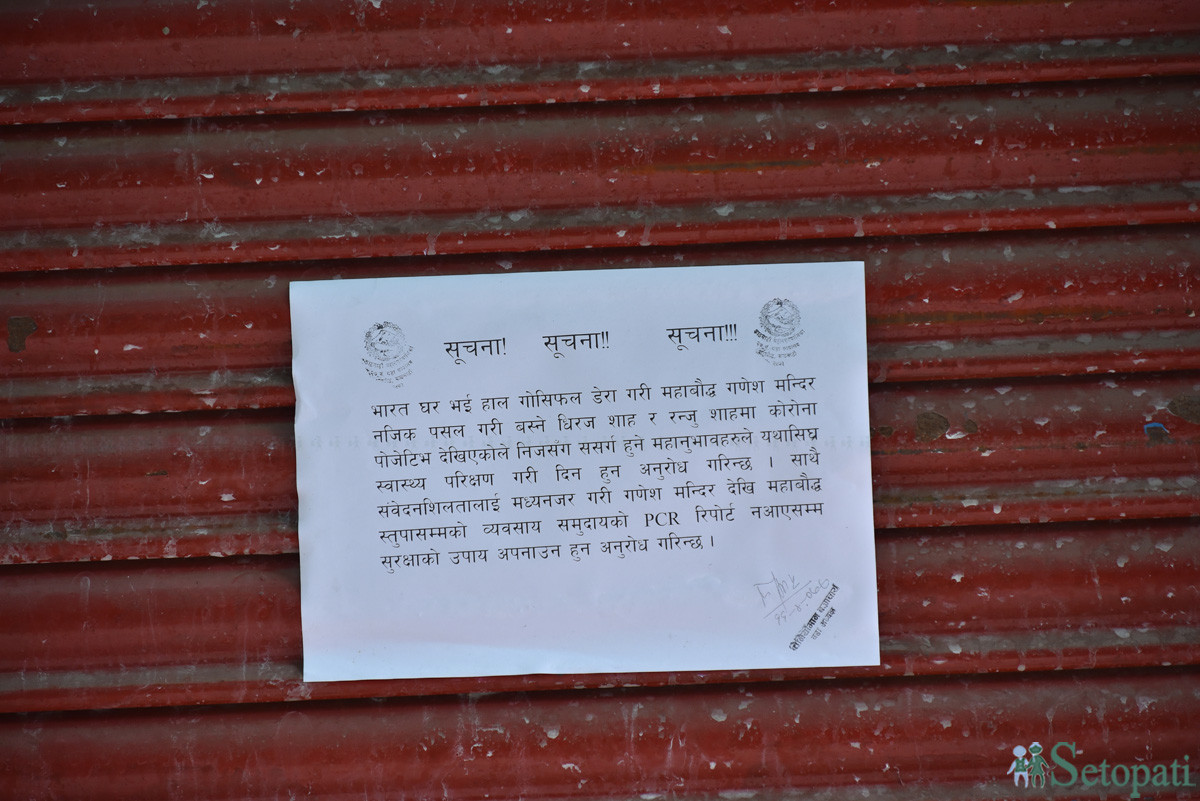 सूचना! सूचना!! सूचना!!!
भारत घर भई हाल गोसिफल डेरा गरी महाबौद्ध गणेश मन्दिर
नजिक पसल गरी बस्ने धिरज शाह र रन्जु शाहमा कोरोना
पोजेटिभ देखिएकोले निजसँग ससर्ग हुने महानुभावहरुले यथासिघ्र
स्वास्थ्य परिक्षण गरी दिन हुन अनुरोध गरिन्छ । साथै
संवेदनशिलतालाई मध्यनजर गरी गणेश मन्दिर देखि महाबौद्ध
स्तुपासम्मको व्यवसाय समुदायको PCR रिपोर्ट नआएसम्म
सुरक्षाको उपाय अपनाउन हुन अनुरोध गरिन्छ ।
वडा अध्यक्ष
Setopati